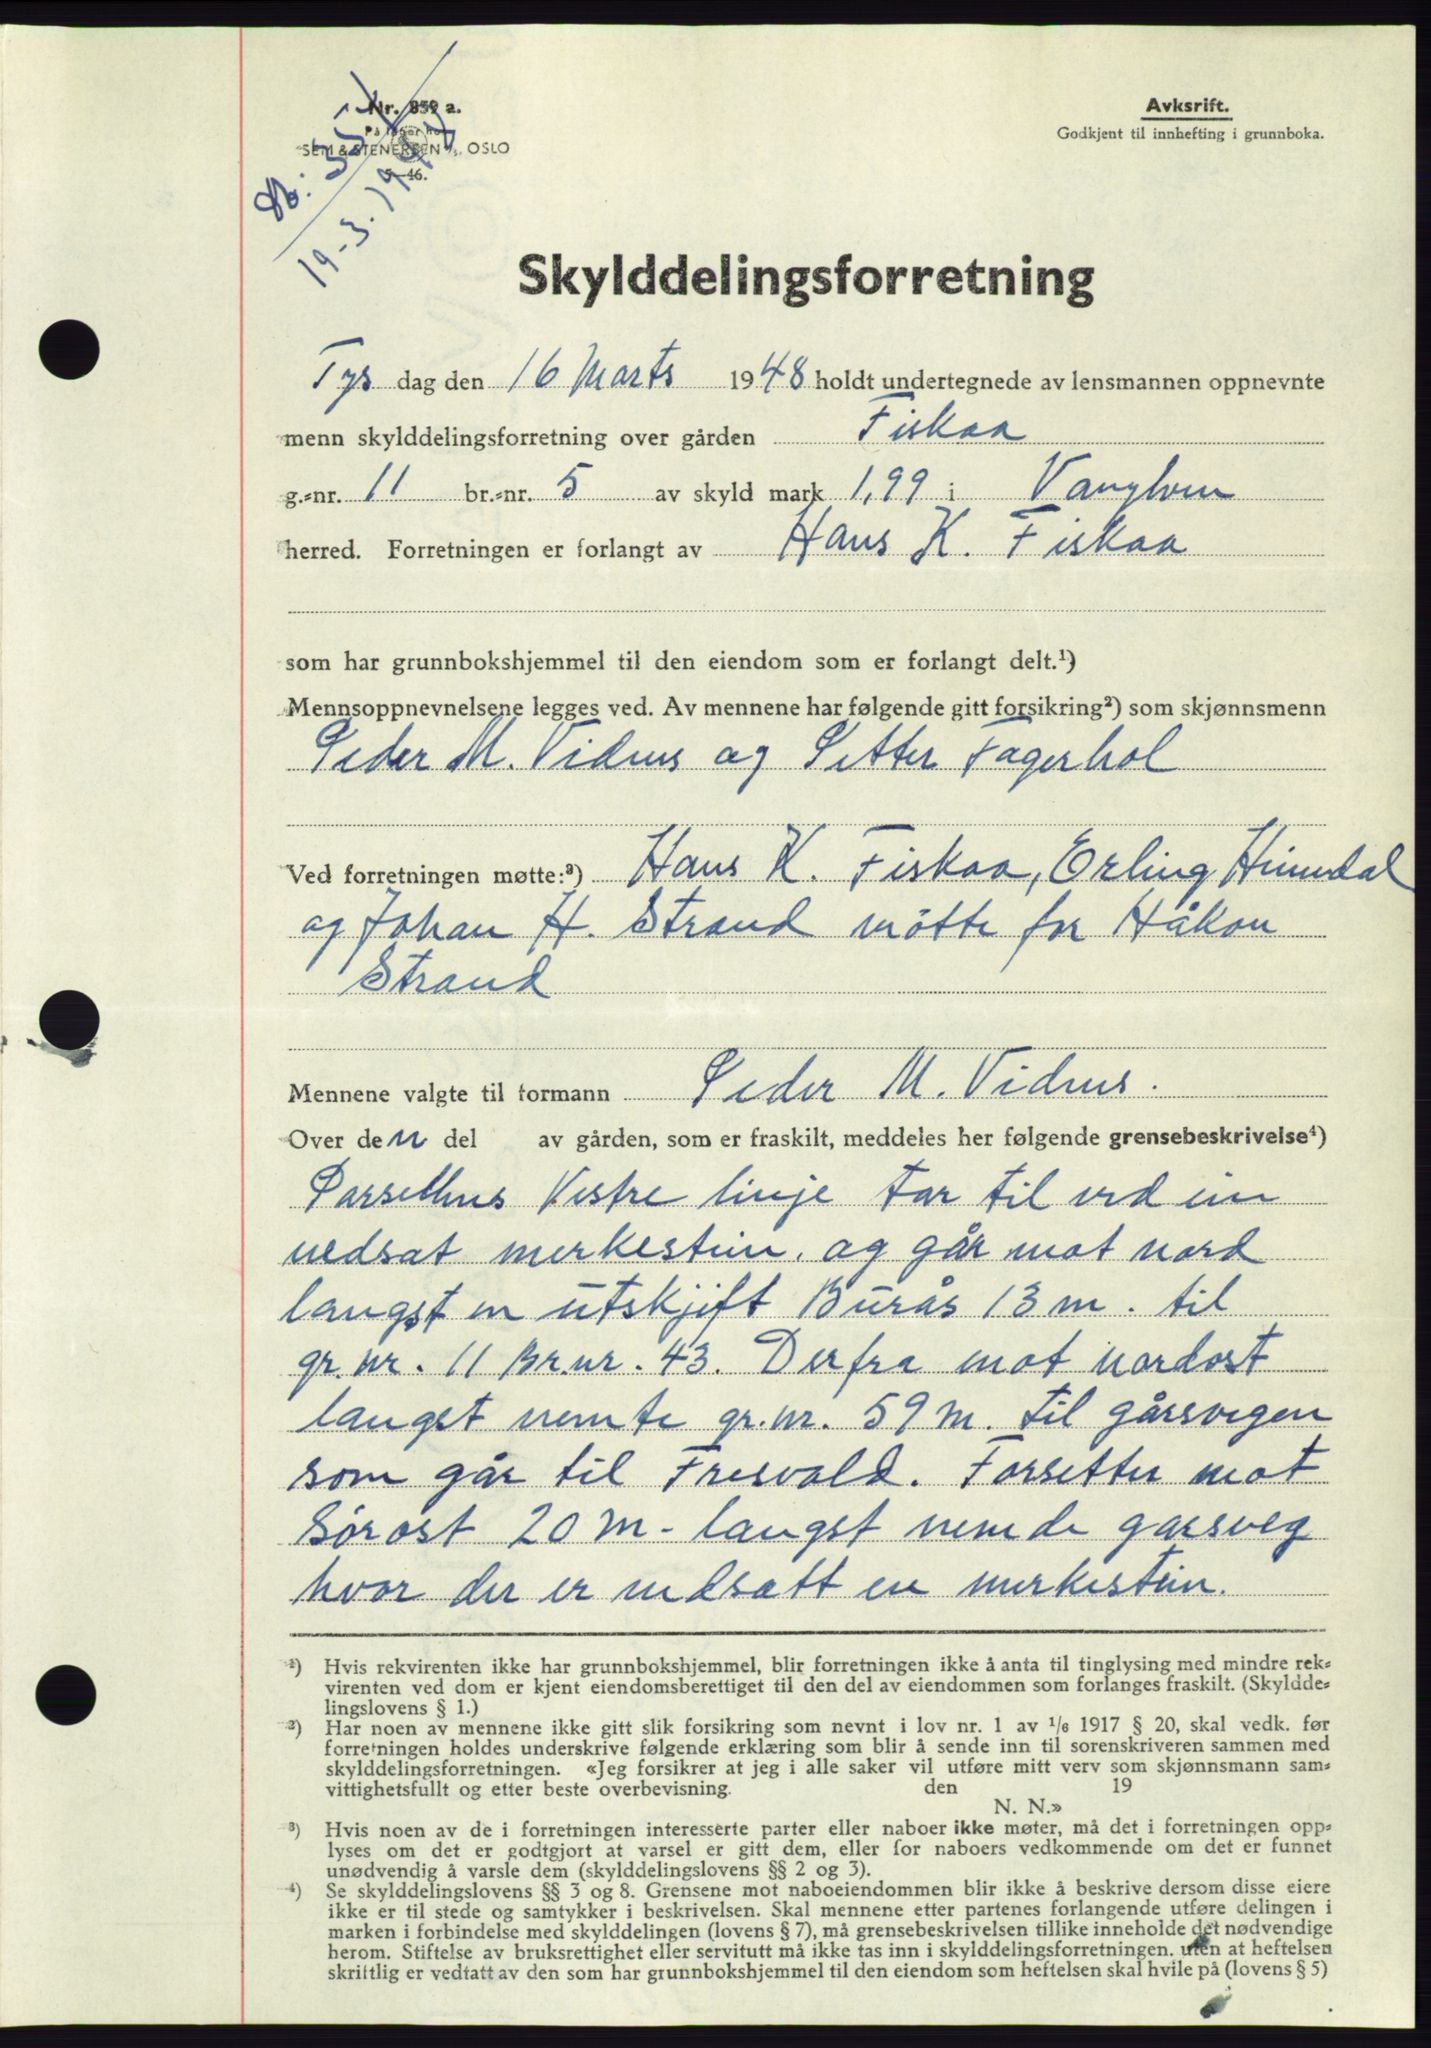 Nr. 859 a.
På lager hos
SEM & STENERSEN A/S, OSLO
5—46.
19-3-1948
Avksrift.
Godkjent til innhefting i grunnboka.
Skylddelingsforretning
Tys dag den 16 Marts 1948 holdt undertegnede av lensmannen oppnevnte
menn skylddelingsforretning over gården Fiskaa
g.=nr. 11 br.=nr. 5 av skyld mark 1,99 i Vanylven
herred. Forretningen er forlangt av Hans K. Fiskaa
som har grunnbokshjemmel til den eiendom som er forlangt delt.¹)
Mennsoppnevnelsene legges ved. Av mennene har følgende gitt forsikring²) som skjønnsmenn
Peder M. Vidnes og Petter Fagerhol
Ved forretningen møtte:³) Hans K. Fiskaa, Erling Heimdal
og Johan H. Strand møtte for Håkon
Strand
Mennene valgte til formann Peder M. Vidnes.
Over den del av gården, som er fraskilt, meddeles her følgende grensebeskrivelse⁴)
Parsellens Vestre linje tar til ved ein
nedsat merkestein, og går mot nord
langst en utskjift Burås 13 m. til
gr. nr. 11 Br. nr. 43. Derfra mot nordost
langst nemte gr. nr. 59 m. til gårsvegen
som går til Fresvold. Forsetter mot
Sørost 20 m - langst nemde garsveg
hvor der er nedsatt en merkestein.
¹) Hvis rekvirenten ikke har grunnbokshjemmel, blir forretningen ikke å anta til tinglysing med mindre rek=
virenten ved dom er kjent eiendomsberettiget til den del av eiendommen som forlanges fraskilt. (Skyldde=
lingslovens § 1.)
²) Har noen av mennene ikke gitt slik forsikring som nevnt i lov nr. 1 av 1/6 1917 § 20, skal vedk. før
forretningen holdes underskrive følgende erklæring som blir å sende inn til sorenskriveren sammen med
skylddelingsforretningen. «Jeg forsikrer at jeg i alle saker vil utføre mitt verv som skjønnsmann sam=
vittighetsfullt og etter beste overbevisning. den 19
N. N.»
³) Hvis noen av de i forretningen interesserte parter eller naboer ikke møter, må det i forretningen opp=
lyses om det er godtgjort at varsel er gitt dem, eller for naboers vedkommende om det er funnet
unødvendig å varsle dem (skylddelingslovens §§ 2 og 3).
⁴) Se skylddelingslovens §§ 3 og 8. Grensene mot naboeiendommen blir ikke å beskrive dersom disse eiere
ikke er til stede og samtykker i beskrivelsen. Skal mennene etter partenes forlangende utføre delingen i
marken i forbindelse med skylddelingen (lovens § 7), må grensebeskrivelsen tillike inneholde det nødvendige
herom. Stiftelse av bruksrettighet eller servitutt må ikke tas inn i skylddelingsforretningen. uten at heftelsen
skriftlig er vedtatt av den som har grunnbokshjemmel til den eiendom som heftelsen skal hvile på (lovens § 5)